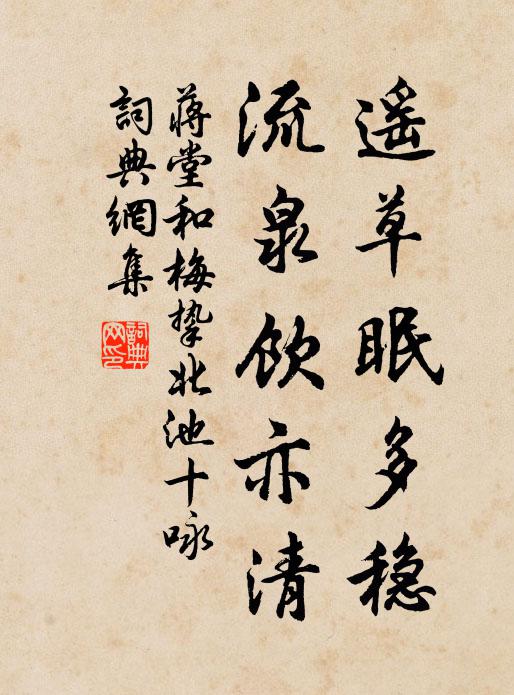 遥草眠多稳
流泉饮亦清
蒋堂和梅挚北池十咏
詞典網集
詞典網印